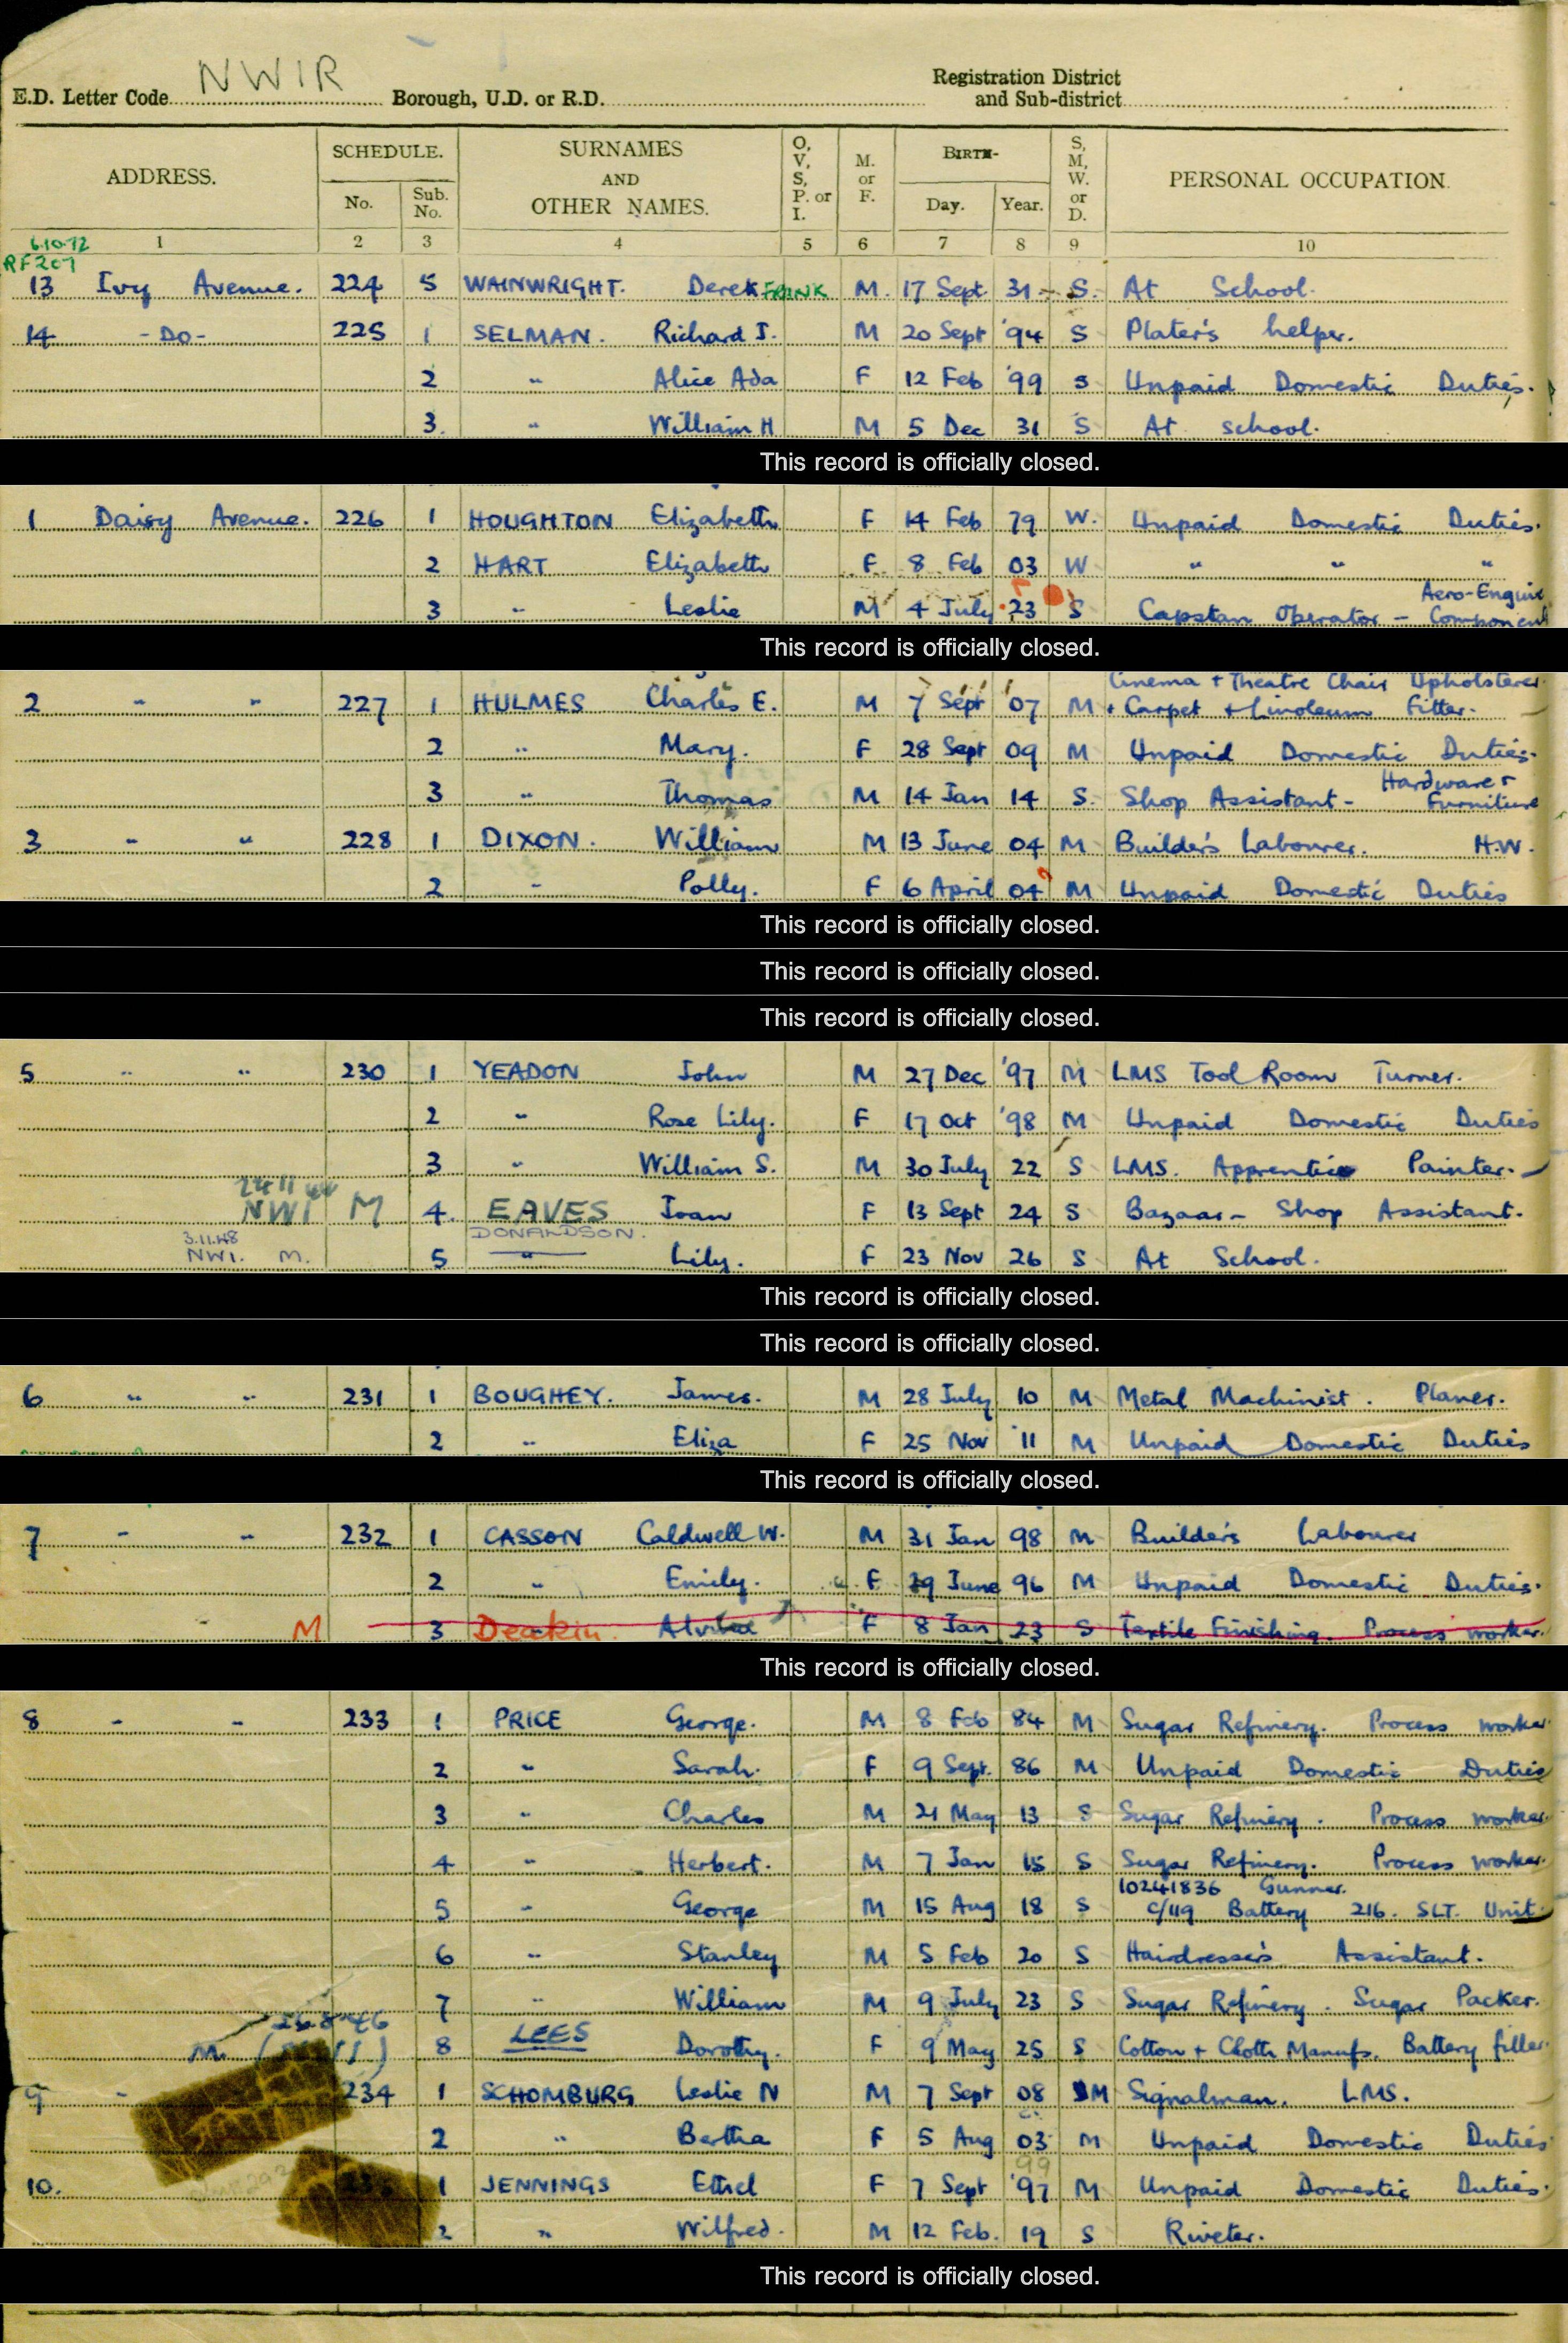 E.D. Letter Code NWIR Borough, U.D. or R.D. Registration District and Sub-district
ADDRESS. SCHEDULE. No. Sub. No. SURNAMES AND OTHER NAMES. O, V, S, P. or I. M. or F. BIRTH- Day. Year. S, M, W. or D. PERSONAL OCCUPATION.
1 2 3 4 5 6 7 8 9 10
6.10.72
RF207
13 Ivy Avenue. 224 5 WAINWRIGHT. Derek FRANK M. 17 Sept 31 - S. At School.
14 - Do - 225 1 SELMAN. Richard J. M 20 Sept '94 S Plater's helper.
2 " Alice Ada F 12 Feb '99 S Unpaid Domestic Duties.
3. " William H M 5 Dec 31 S At school.
This record is officially closed.
1 Daisy Avenue. 226 1 HOUGHTON Elizabeth F 14 Feb 79 W. Unpaid Domestic Duties.
2 HART Elizabeth F 8 Feb 03 W " " "
3 " Leslie M 4 July 23 S Capstan Operator - Aero-Engine Component
This record is officially closed.
2 " " 227 1 HULMES Charles E. M 7 Sept '07 M Cinema + Theatre Chair Upholsterer + Carpet + Linoleum Fitter.
2 " Mary. F 28 Sept 09 M Unpaid Domestic Duties.
3 " Thomas M 14 Jan 14 S. Shop Assistant - Hardware + Furniture
3 " " 228 1 DIXON. William M 13 June 04 M Builder's Labourer. H.W.
2 " Polly. F 6 April 04 M Unpaid Domestic Duties
This record is officially closed.
This record is officially closed.
This record is officially closed.
5 " " 230 1 YEADON John M 27 Dec '97 M LMS Tool Room Turner.
2 " Rose Lily. F 17 Oct '98 M Unpaid Domestic Duties
3 " William S. M 30 July 22 S LMS. Apprentice Painter.
NWI M 4. EAVES Joan F 13 Sept 24 S Bazaar - Shop Assistant.
3.11.48 DONALDSON.
NWI. M. 5 " Lily. F 23 Nov 26 S At School.
This record is officially closed.
This record is officially closed.
6 " " 231 1 BOUGHEY. James. M 28 July 10 M Metal Machinist. Planer.
2 " Eliza F 25 Nov '11 M Unpaid Domestic Duties
This record is officially closed.
7 " " 232 1 CASSON Caldwell W. M 31 Jan 98 M Builder's Labourer
2 " Emily. F 29 June 96 M Unpaid Domestic Duties.
M 3 Deakin F 8 Jan 23 S Textile Finishing. Process worker.
This record is officially closed.
8 " " 233 1 PRICE George. M 8 Feb 84 M Sugar Refinery. Process worker
2 " Sarah. F 9 Sept. 86 M Unpaid Domestic Duties
3 " Charles M 21 May 13 S Sugar Refinery. Process worker.
4 " Herbert. M 7 Jan 15 S Sugar Refinery. Process worker.
10241836 Gunner.
5 " George M 15 Aug 18 S C/119 Battery 216. SLT. Unit.
6 " Stanley M 5 Feb 20 S Hairdresser's Assistant.
7 " William M 9 July 23 S Sugar Refinery. Sugar Packer.
M. 8 LEES Dorothy. F 9 May 25 S Cotton + Cloth Manufs. Battery filler.
9 " 234 1 SCHOMBURG Leslie N M 7 Sept 08 M Signalman. LMS.
2 " Bertha F 5 Aug 03 M Unpaid Domestic Duties
10. 1 JENNINGS Ethel F 7 Sept '97 M Unpaid Domestic Duties.
2 " Wilfred. M 12 Feb. 19 S Riveter.
This record is officially closed.